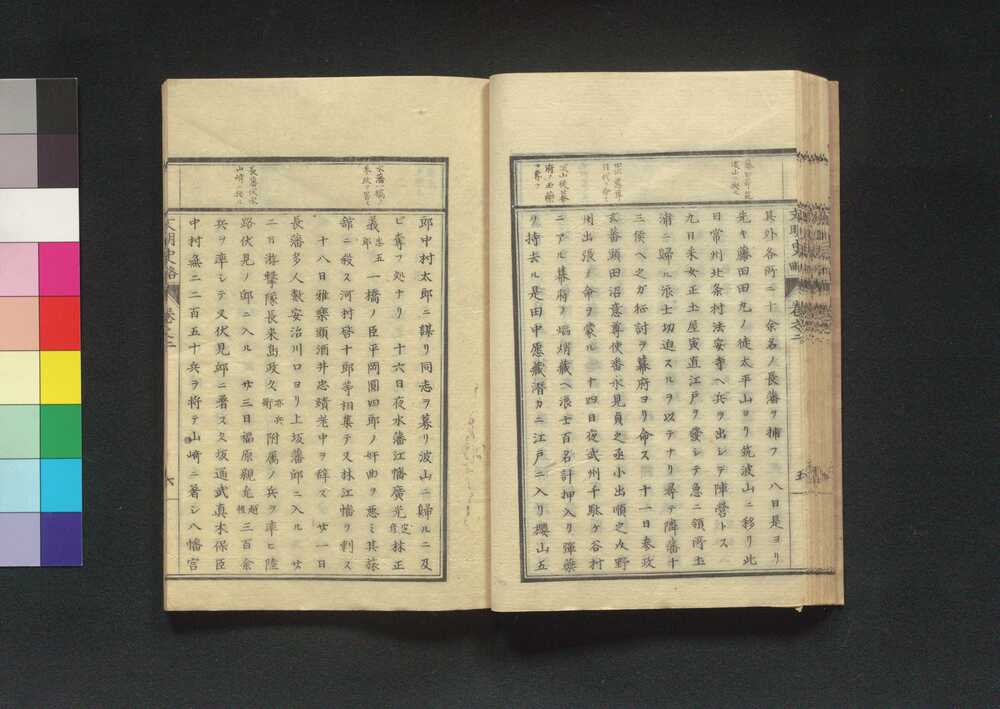 其外各所ニ十余名ノ長藩ヲ捕フ 八日是ヨリ
先キ藤田田丸ノ徒太平山ヨリ筑波山ニ移リ此
日常州北条村法安寺ヘ兵ヲ出シテ陣営トス
九日采女正土屋寅直江戸ヲ發シテ急ニ領所土
浦ニ歸ル浪士切迫スルヲ以テナリ尋テ隣藩十
三侯ヘ之カ征討ヲ幕府ヨリ命ス 十一日参政
玄蕃頭田沼意尊使番永見貞之丞小出順之助野
州出張ノ命ヲ蒙ル 十四日夜武州千駄ヶ谷村
ニアル幕府ノ焔焇藏ヘ浪士百名計押入リ彈藥
ヲ持去ル是田中愿藏潜カニ江戸ニ入リ櫻山五
文明史略 卷之二 五
郎中村太郎ニ謀リ同志ヲ募リ波山ニ歸ルニ及
ビ奪フ処ナリ 十六日夜水藩江幡廣光定彦林正
義忠五郎一橋ノ臣平岡圓四郎ノ奸曲ヲ悪ミ其旅
舘ニ殺ス河村啓十郎等相集テ又林江幡リ刺ス
十八日雅樂頭酒井忠績老中ヲ辞ス 廿一日
長藩多人數安治川口ヨリ上坂藩邸ニ入ル 廿
二日游撃隊長来島政久亦兵衛附属ノ兵ヲ率ヒ陸
路伏見ノ邸ニ入ル 廿三日福原親兵越後三百余
兵ヲ率シテ又伏見邸ニ著ス久坂通武真木保臣
中村無二二百五十兵ヲ将テ山崎ニ著シ八幡宮
文明史略 卷之二 六
長藩伏水
山崎ニ拠ル